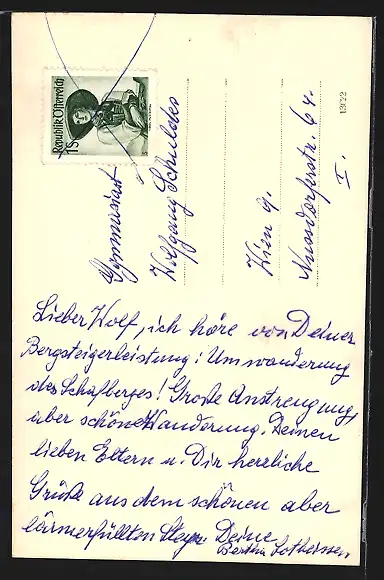 Republik Österreich
1S
Gymnasiast
Wolfgang Schuldes
Wien 9.
Nussdorferstr. 64.
I.
13022
Lieber Wolf, ich höre von Deiner
Bergsteigerleistung: Umwanderung
des Schafberges! Große Anstrengung,
aber schöne Wanderung. Deinen
lieben Eltern u. Dir herzliche
Grüße aus dem schönen aber
lärmerfüllten Steyr. Deine
Bertha